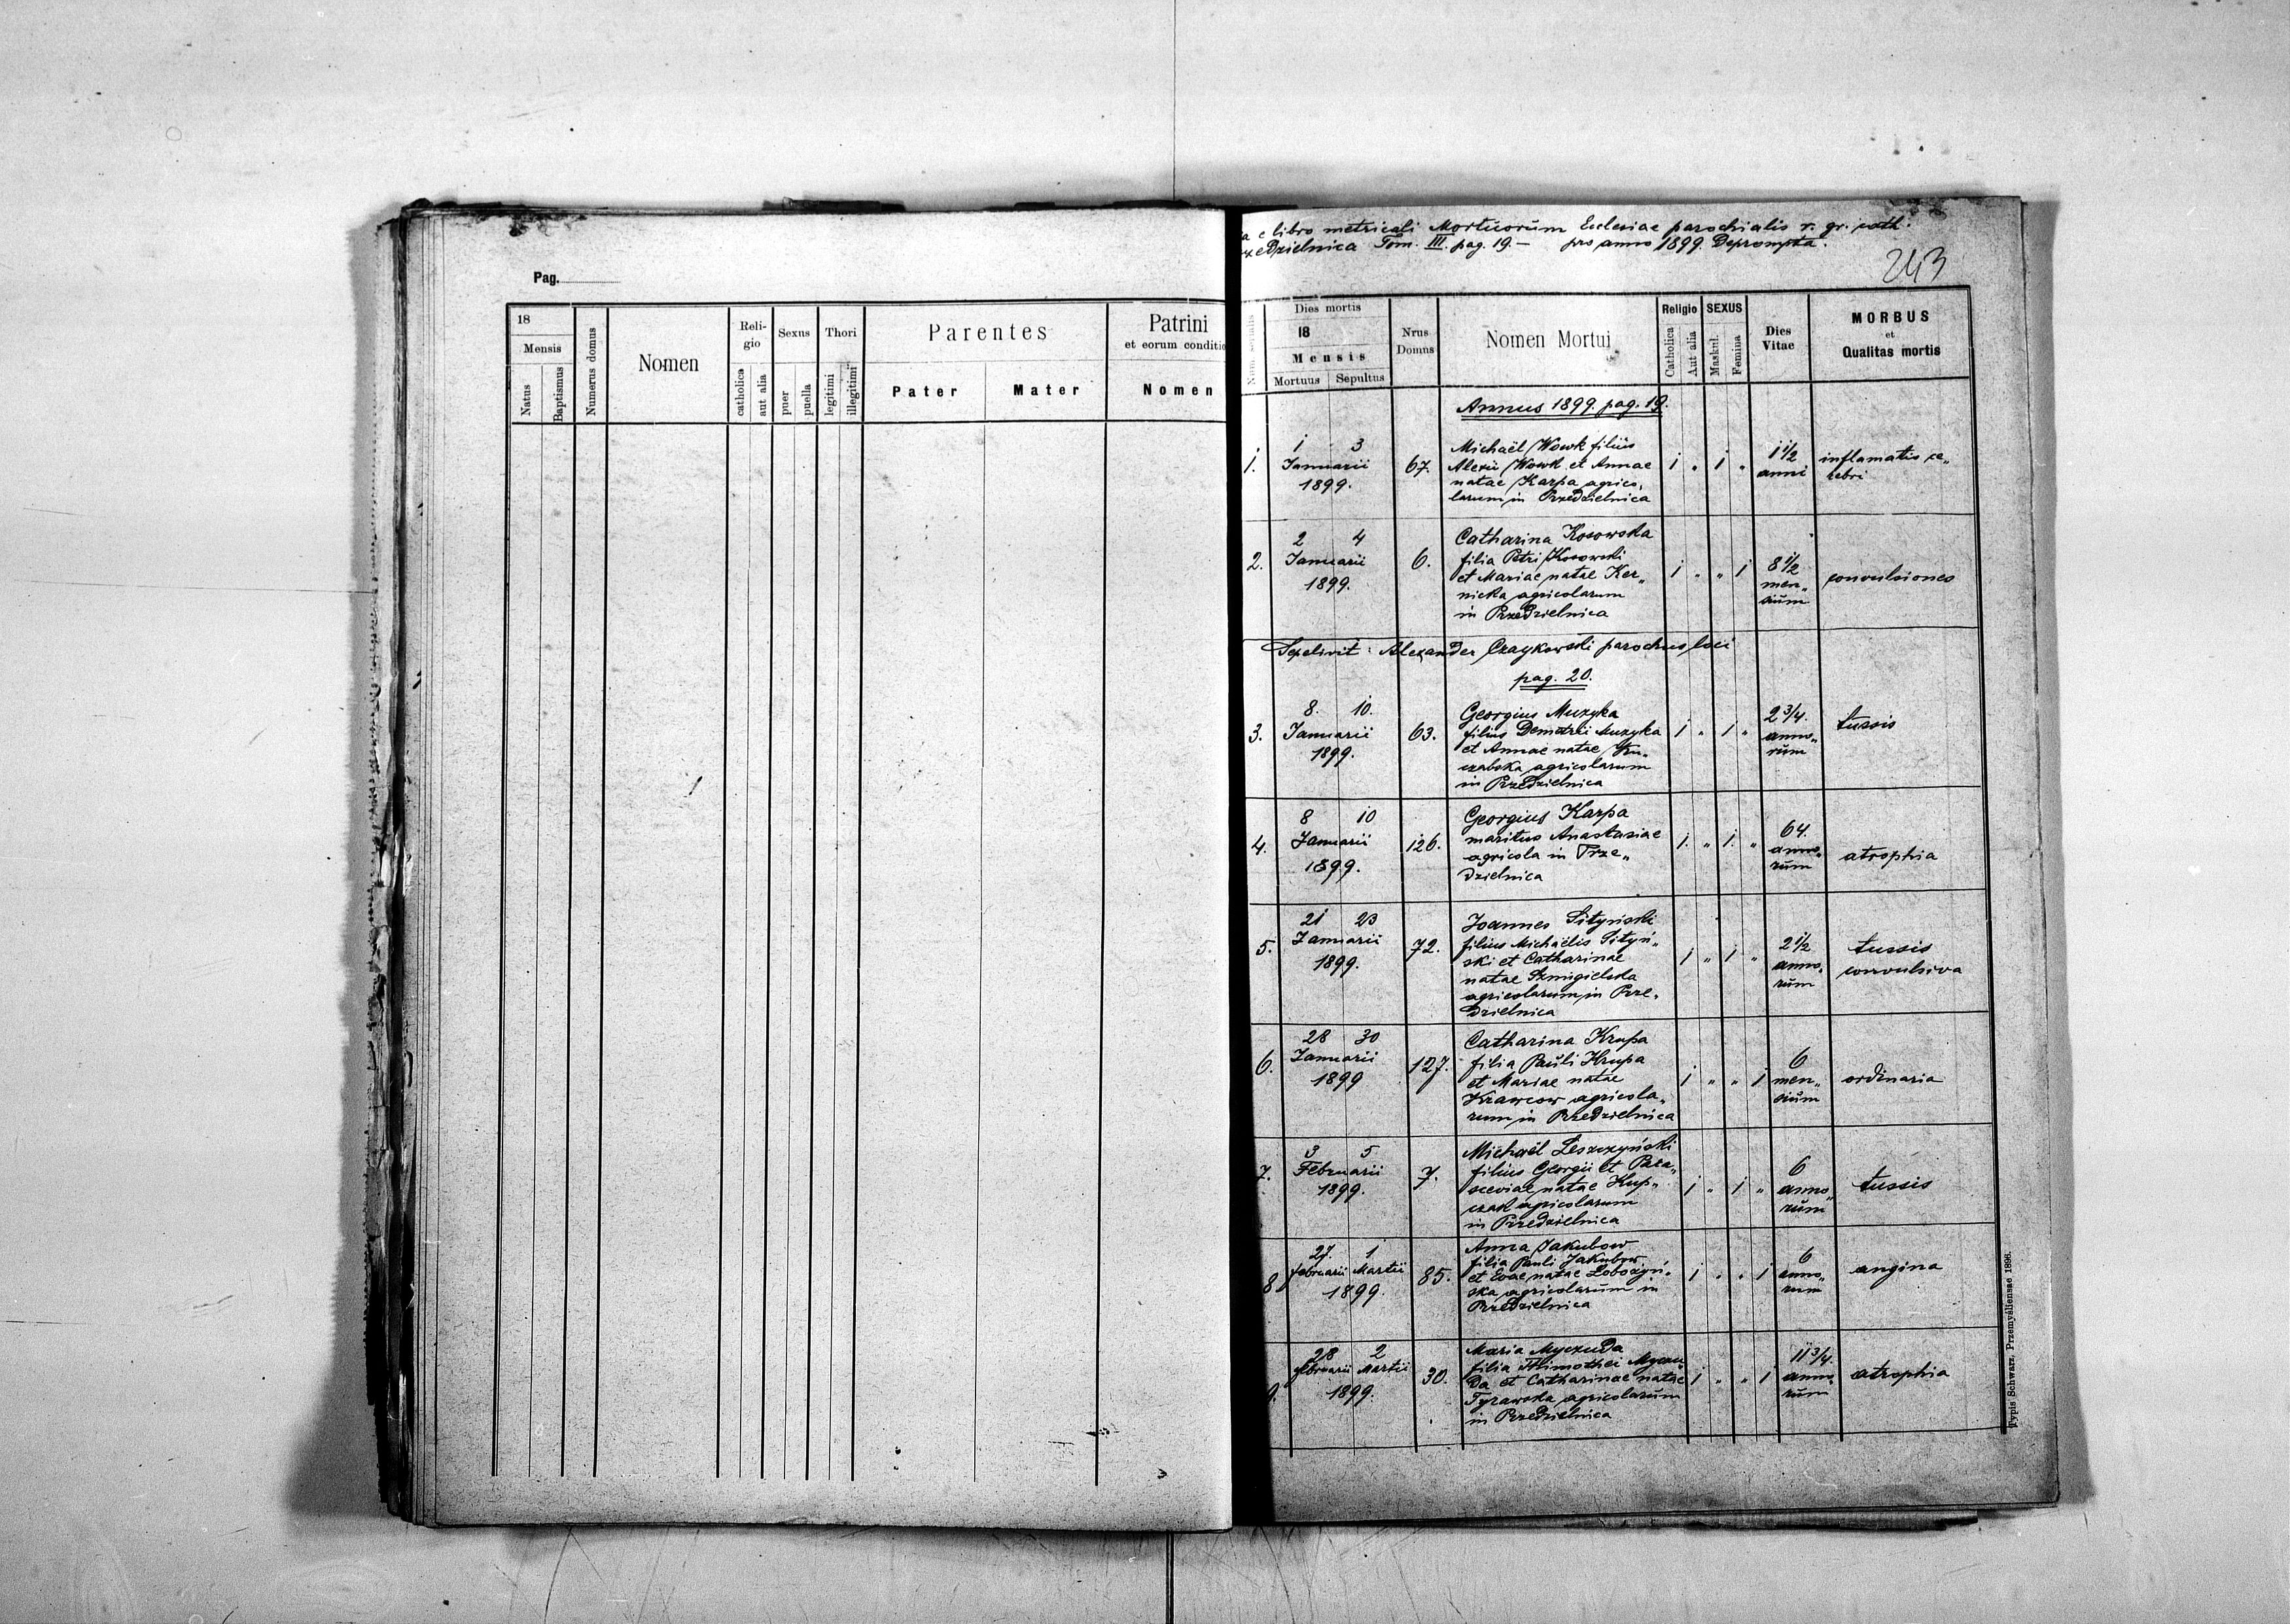 Pag.
18
Mensis
Natus
Baptismus
Numerus domus
Nomen
Reli-
gio
catholica
aut alia
Sexus
puer
puella
Thori
legitimi
illegitimi
Parentes
Pater
Mater
Patrini
et eorum conditio
Nomen
e libro metricali Mortuorum Ecclesiae parochialis r. gr. cath.
Tom. III. pag. 19 – pro anno 1899. Deprompta.
243
Num. serialis
Dies mortis
18
Mensis
Mortuus
Sepultus
Nrus
Domus
Nomen Mortui
Religio
Catholica
Aut alia
SEXUS
Maskul.
Femina
Dies
Vitae
MORBUS
et
Qualitas mortis
Annus 1899. pag. 19.
1.
1 3
Januarii
1899.
67.
Michaël Wowk filius
Alexii Wowk et Annae
natae Karpa agrico„
larum in Przedzielnica
1 „ 1 „
1 1/2
anni
inflamatio ce„
rebri
2.
2 4
Januarii
1899.
6.
Catharina Kosowska
filia Petri Kosowski
et Mariae natae Ker„
nicka agricolarum
in Przedzielnica
1 „ „ 1
8 1/2
men„
sium
convulsiones
Sepelivit: Alexander Czaykowski parochus loci
pag. 20.
3.
8. 10.
Januarii
1899.
63.
Georgius Muzyka
filius Demetrii Muzyka
et Annae natae
agricolarum
in Przedzielnica
1 „ 1 „
2 3/4.
anno„
rum
tussis
4.
8 10
Januarii
1899.
126.
Georgius Karpa
maritus Anastasiae
agricola in Prze„
dzielnica
1. „ 1. „
64.
anno„
rum
atrophia
5.
21 23
Januarii
1899.
72.
Joannes Sityński
filius Michaëlis Sityń„
ski et Catharinae
natae Szmigielska
agricolarum in Prze„
dzielnica
1 „ 1 „
2 1/2
anno„
rum
tussis
convulsiva
6.
28 30
Januarii
1899
127.
Catharina Krupa
filia Pauli Krupa
et Mariae natae
Krawcow agricola„
rum in Przedzielnica
1 „ „ 1
6
men„
sium
ordinaria
7.
3 5
Februarii
1899.
7.
Michaël Leszczyński
filius Georgii et Para„
sceviae natae Kup„
czak agricolarum
in Przedzielnica
1 „ 1 „
6
anno„
rum
tussis
8
27. 1
Februarii Martii
1899.
85.
Anna Jakubow
filia Pauli Jakubow
et Evae natae Łobożyń„
ska agricolarum in
Przedzielnica
1 „ „ 1
6
anno„
rum
angina
9.
28 2
Februarii Martii
1899.
30.
Maria Myczuda
filia Thimothei Myczu„
da et Catharinae natae
Tyrawska agricolarum
in Przedzielnica
1 „ „ 1
11 3/4.
anno„
rum
atrophia
Typis Schwarz. Przemyśliense 1896.